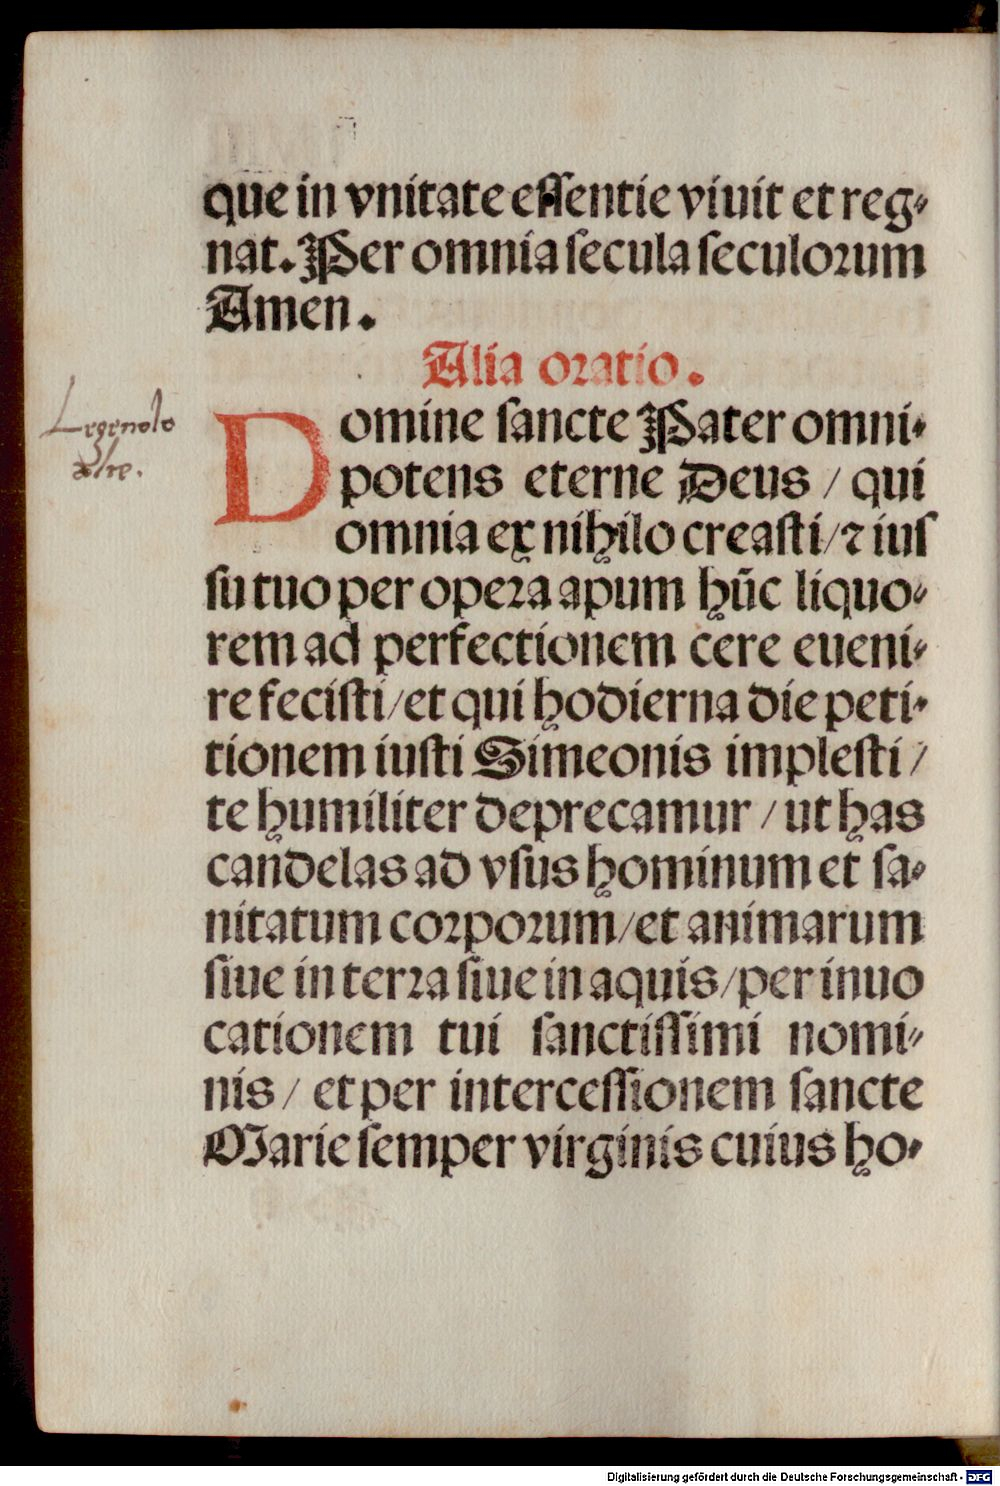 que in vnitate essentie viuit et reg⸗
nat. Per omnia secula seculorum
Amen.
Alia oratio.
Domine sancte Pater omni⸗
potens eterne Deus / qui
omnia ex nihilo creasti/ ⁊ ius
su tuo per opera apum hūc liquo⸗
rem ad perfectionem cere eueni⸗
re fecisti/ et qui hodierna die peti⸗
tionem iusti Simeonis implesti /
te humiliter deprecamur / ut has
candelas ad vsus hominum et sa⸗
nitatum corporum/ et animarum
siue in terra siue in aquis/ per inuo
cationem tui sanctissimi nomi⸗
nis / et per intercessionem sancte
Marie semper virginis cuius ho⸗
Legendo
Digitalisierung gefördert durch die Deutsche Forschungsgemeinschaft - DFG